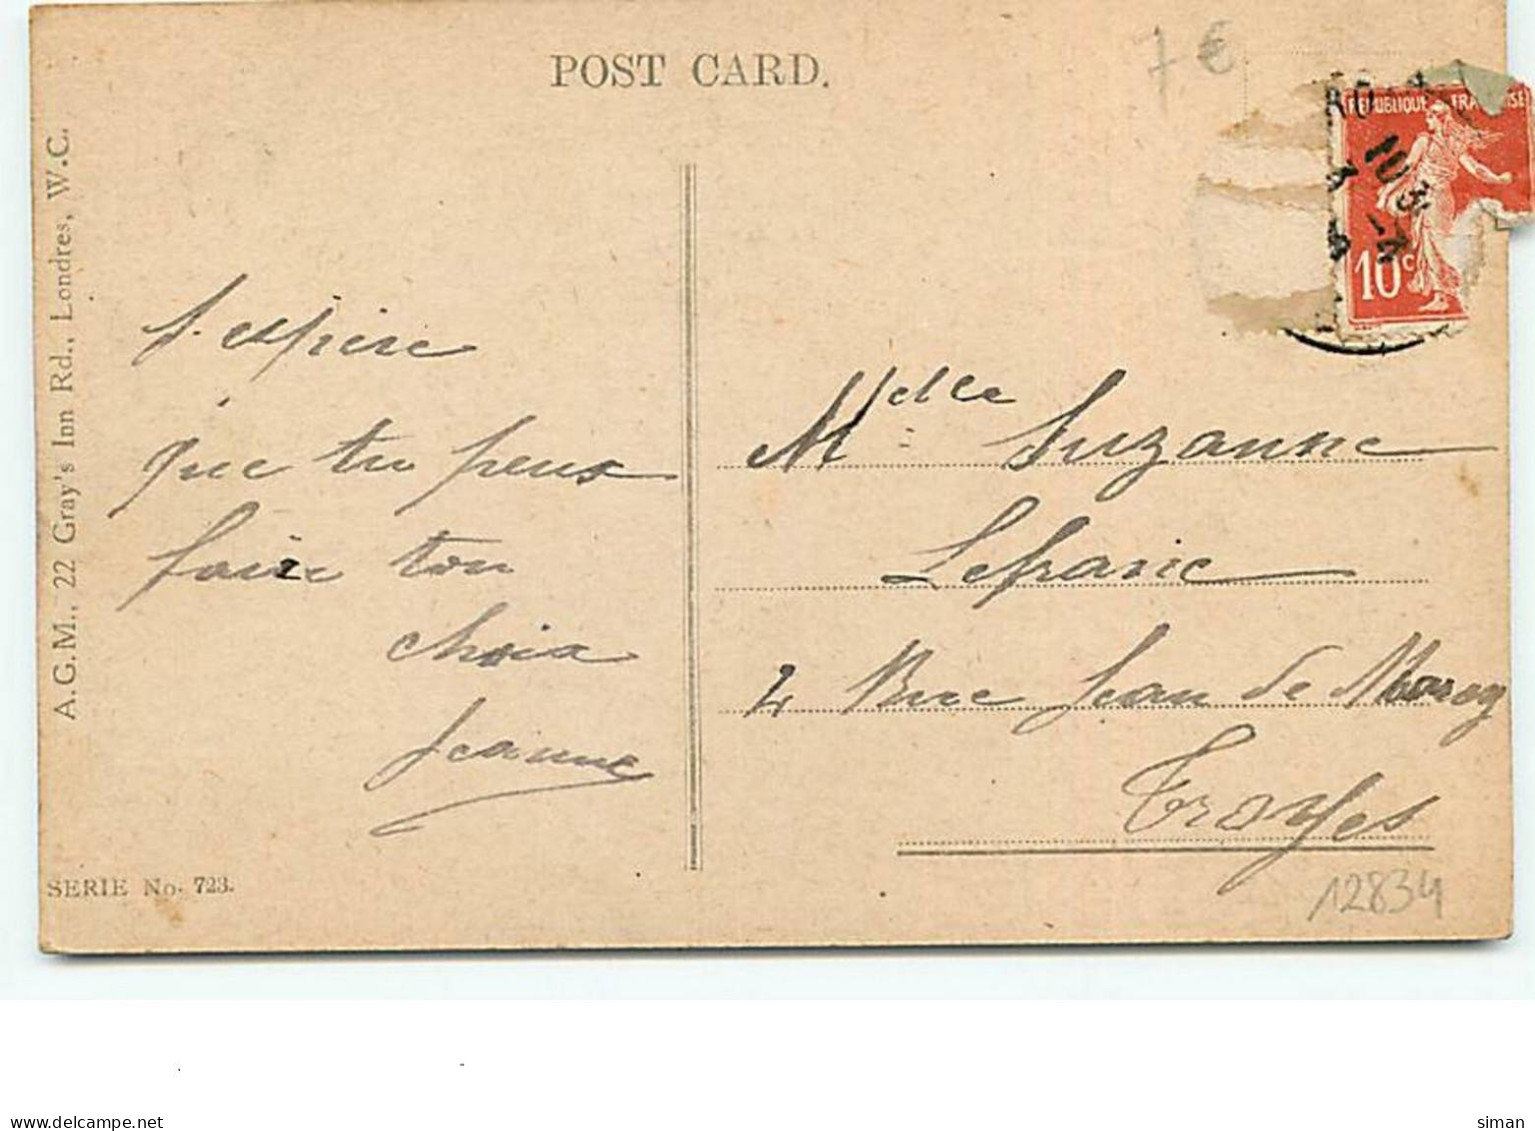 POST CARD.
7 €
REPUBLIQUE FRANÇAISE
10c
A.G.M., 22 Gray's Inn Rd., Londres, W.C.
J'espère
que tu peux
faire ton
choix
Jeanne
Melle Suzanne
Lefranc
4 Rue Jean de Mauroy
Troyes
SERIE No. 723.
12834
www.delcampe.net
siman